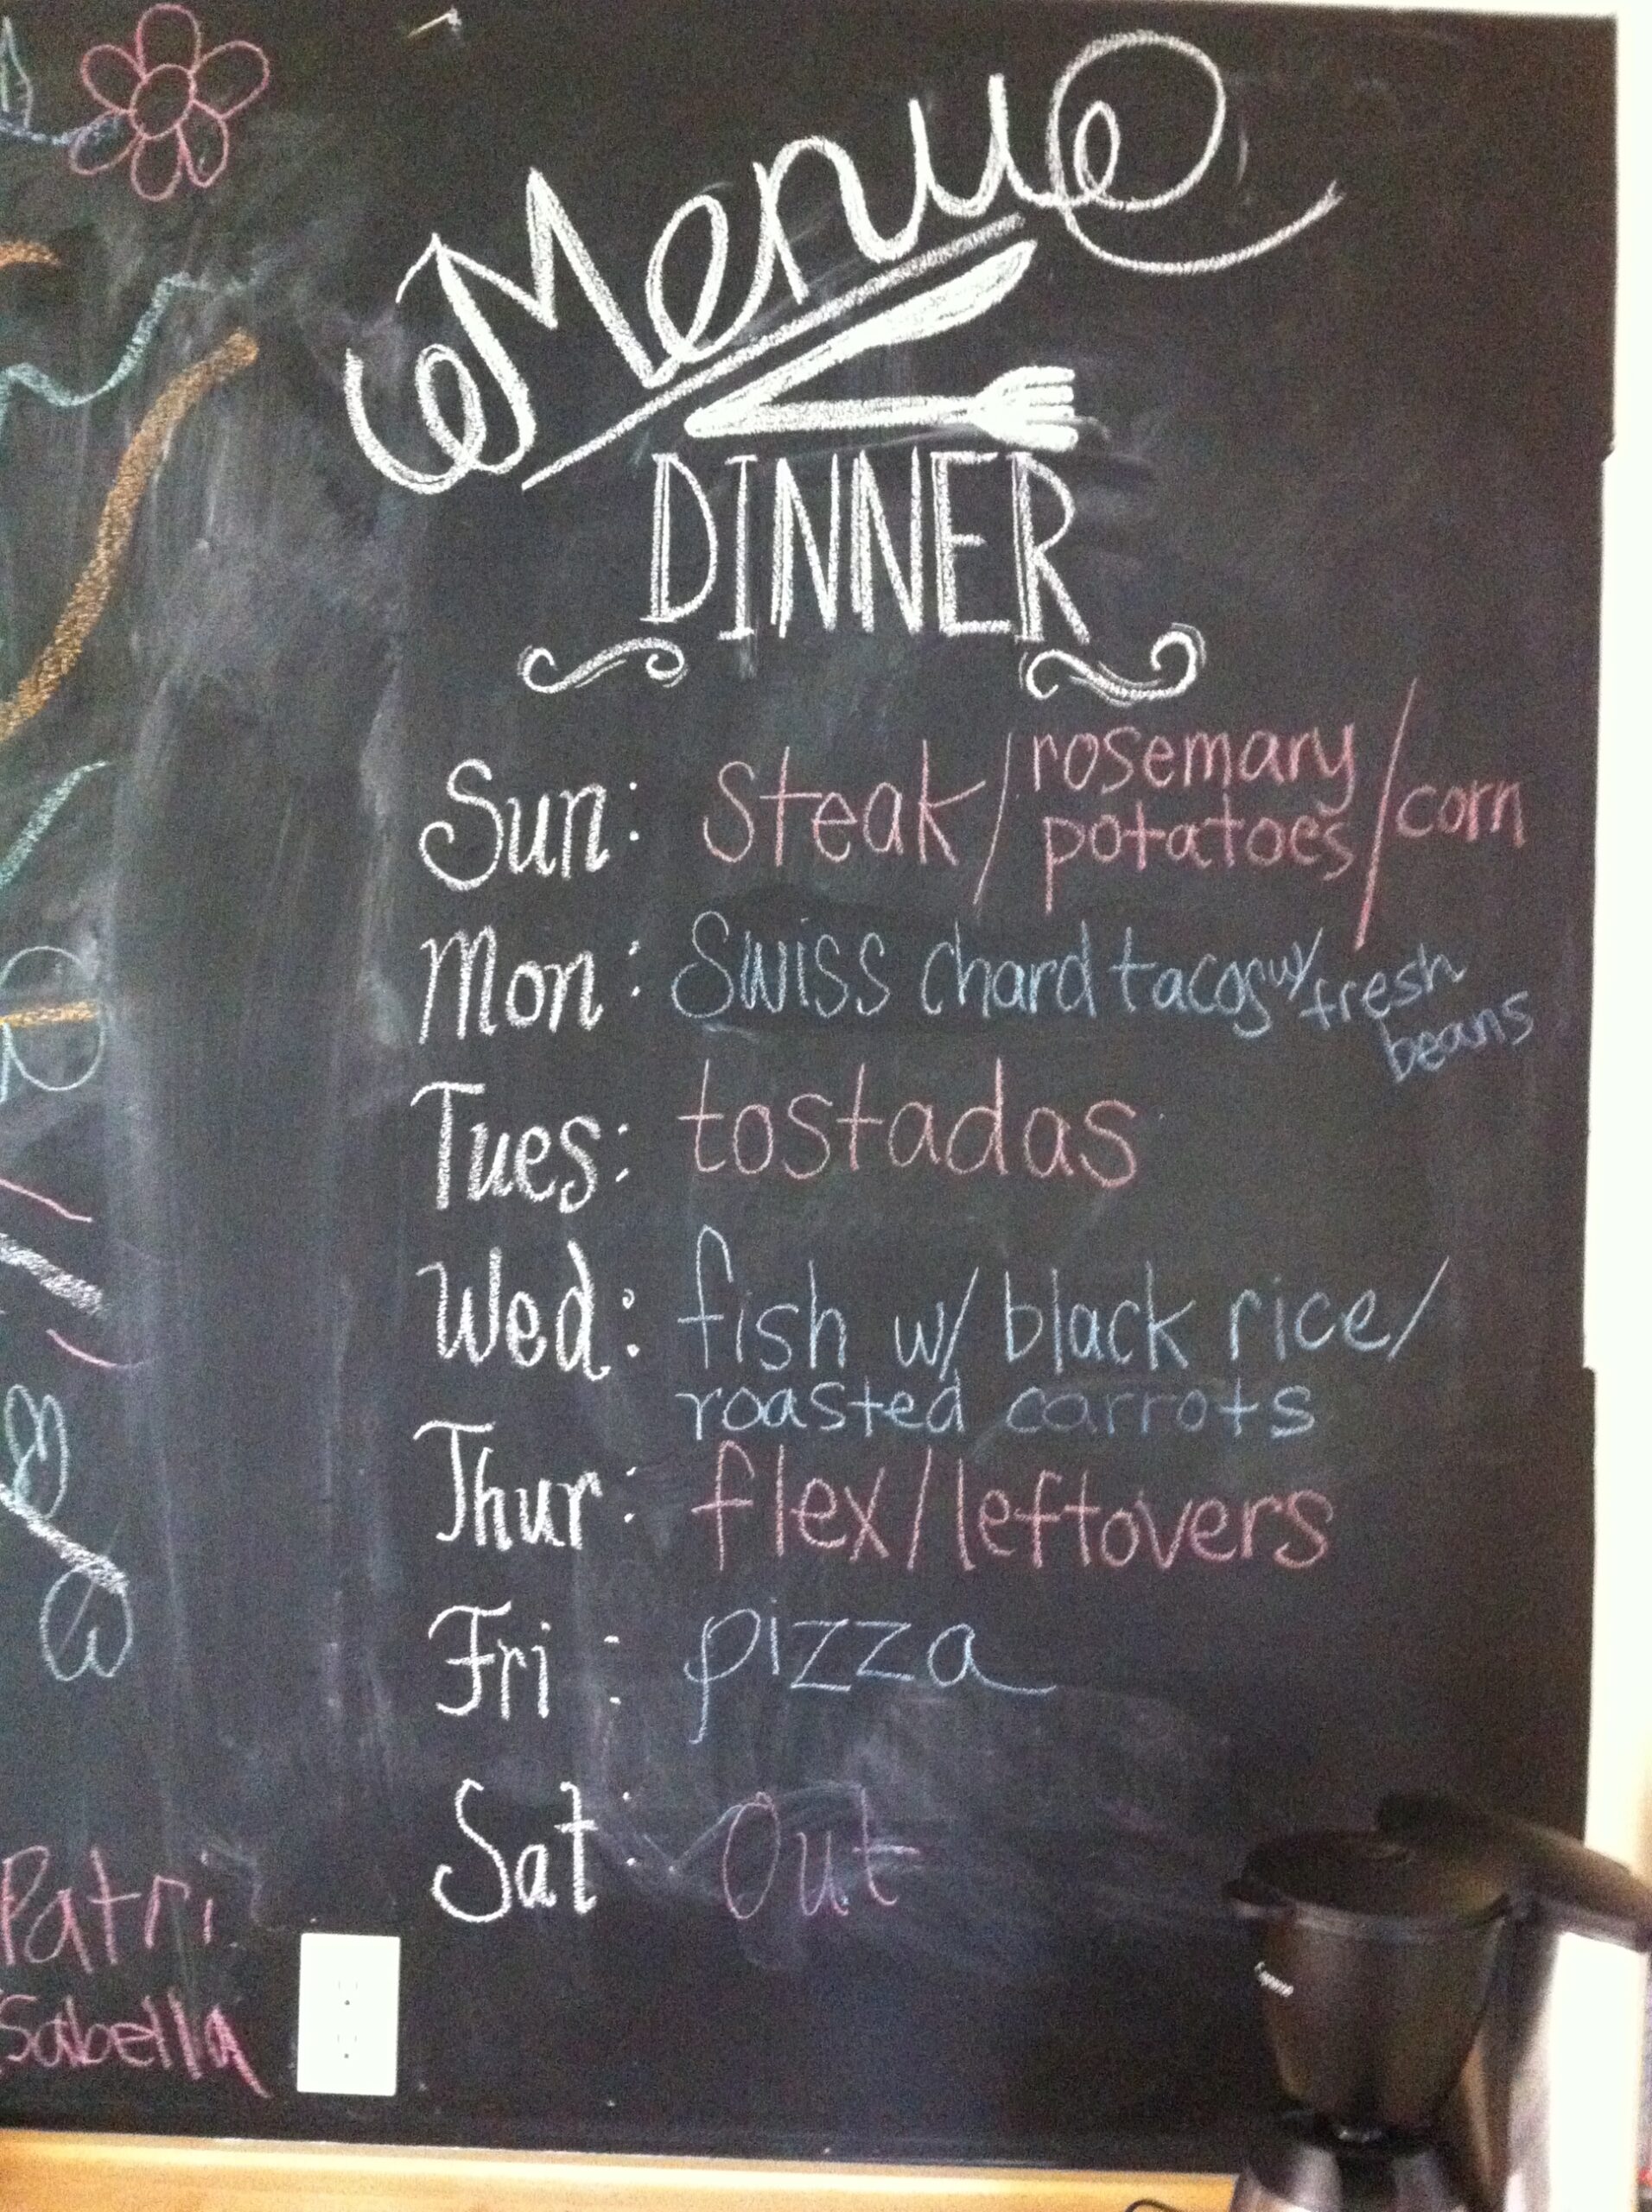 Menu
DINNER
Sun: Steak/rosemary potatoes/corn
Mon: Swiss chard tacos w/ fresh
beans
Tues: tostadas
Wed: fish w/ black rice/
roasted carrots
Thur: flex/leftovers
Fri: pizza
Sat: Out
Patri
Isabella